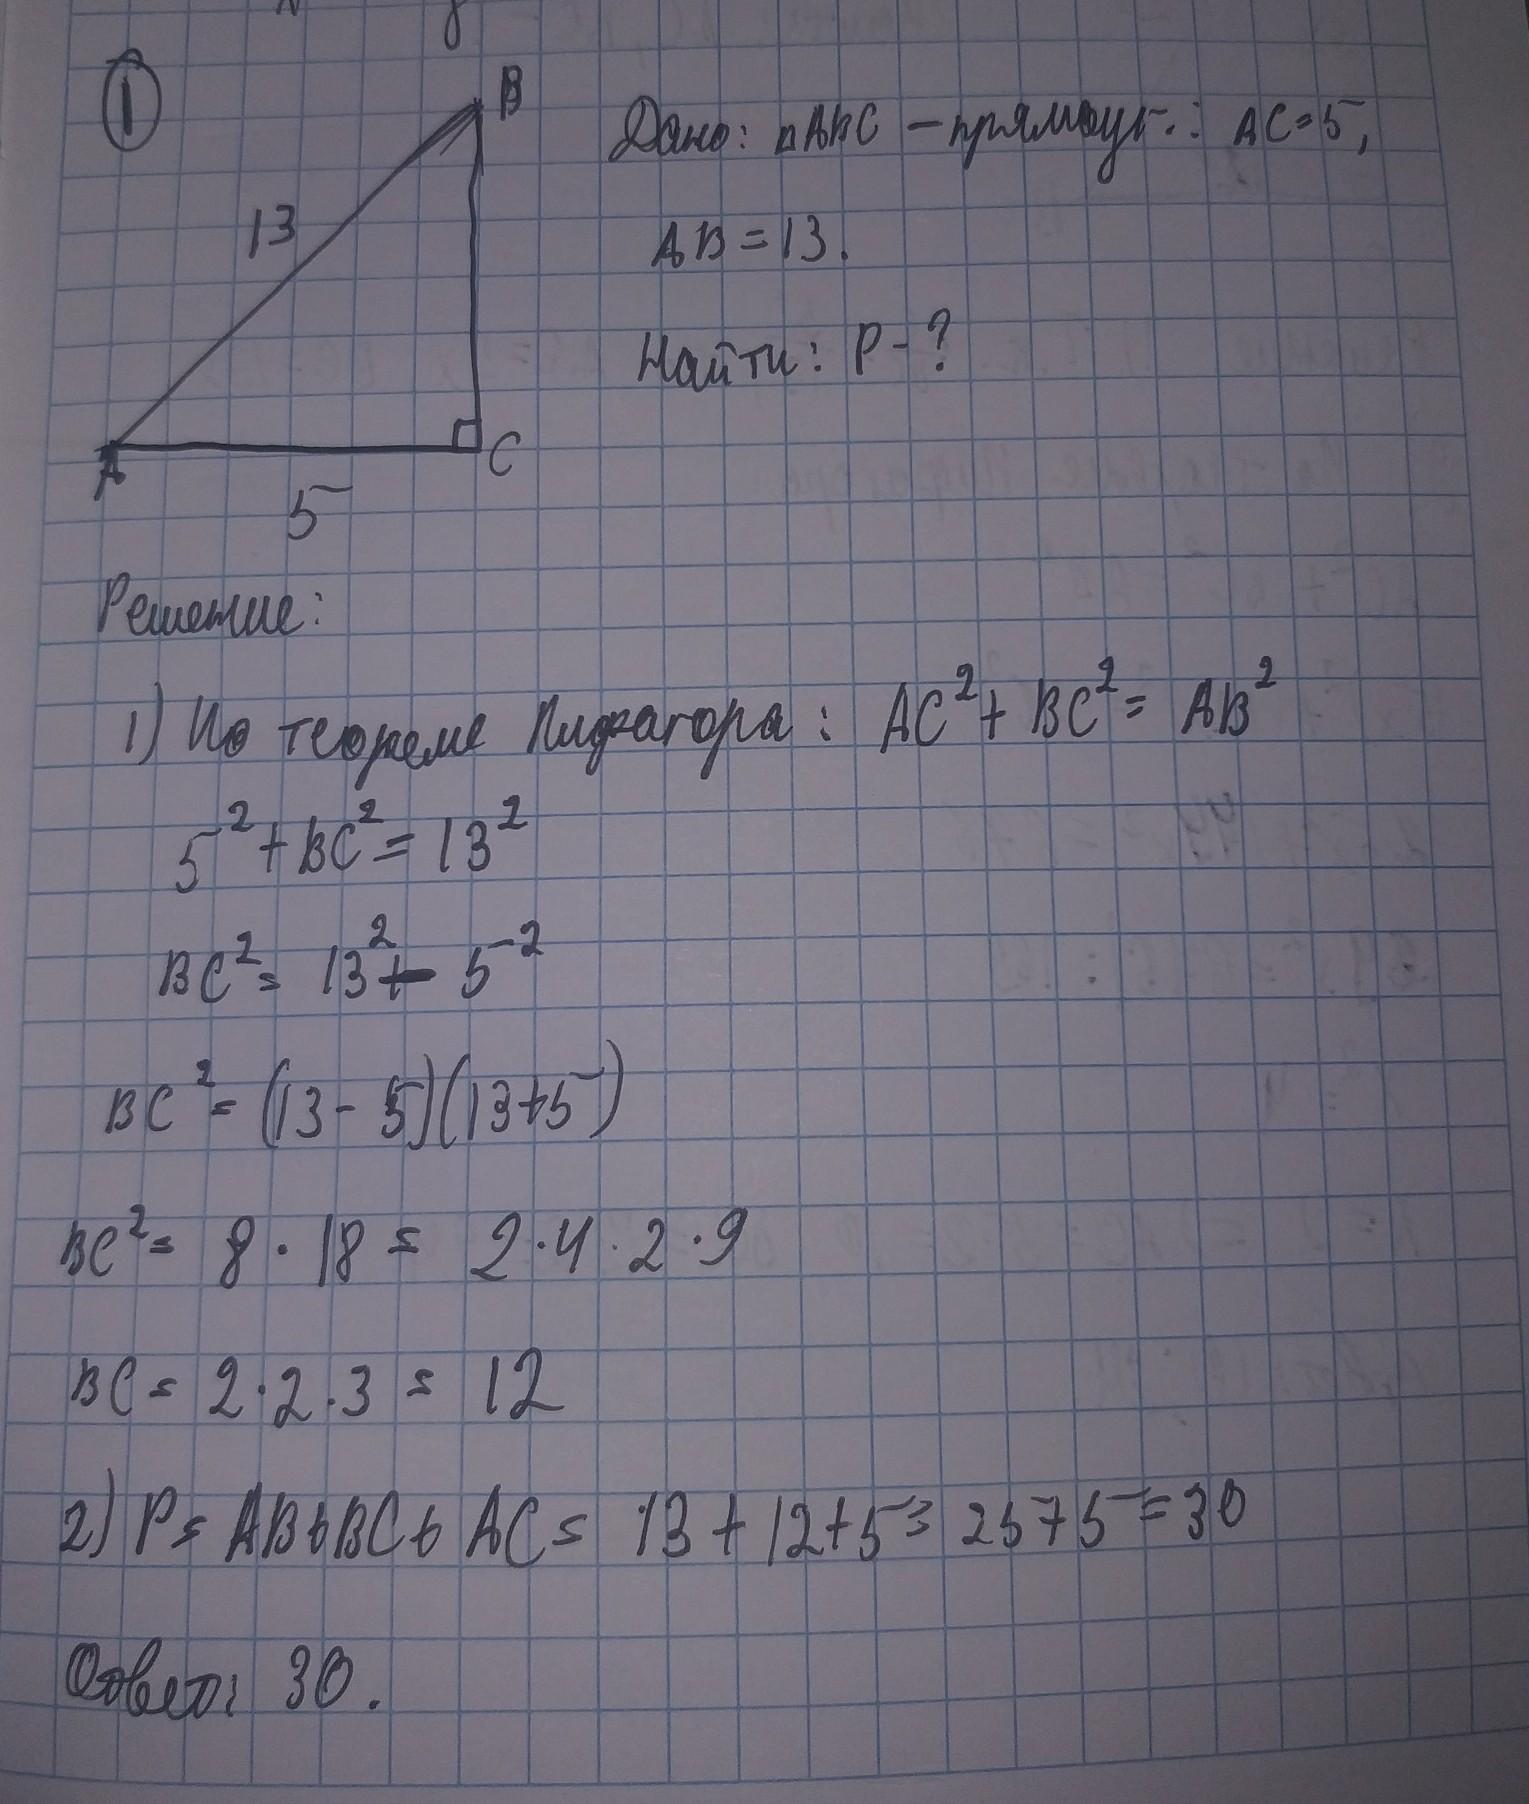 ①
B
Дано: △ABC – прямоуг.: AC=5,
13
AB=13.
Найти: P-?
A
C
5
Решение:
1) По теореме Пифагора: AC²+BC²=AB²
5²+BC²=13²
BC²=13²-5²
BC²=(13-5)(13+5)
BC²=8·18=2·4·2·9
BC=2·2·3=12
2) P=AB+BC+AC=13+12+5=25+5=30
Ответ: 30.